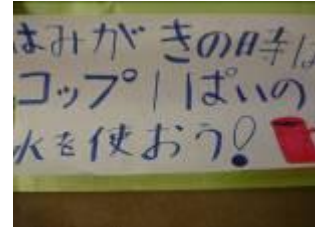 はみがきの時は
コップ1ぱいの
水を使おう!